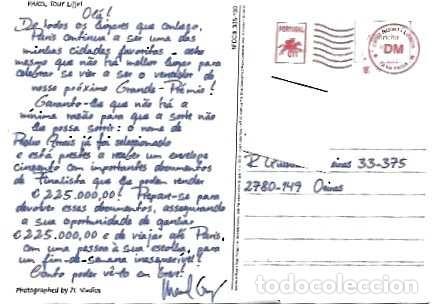 PARIS, Tour Eiffel
Olá!
De todos os lugares que conheço,
Paris continua a ser uma das
minhas cidades favoritas - acho
mesmo que não há melhor lugar para
celebrar se vier a ser o vencedor do
nosso próximo Grande-Prémio!
Garanto-lhe que não há a
mínima razão para que a sorte não
lhe possa sorrir: o nome de
Pedro Anais já foi seleccionado
e está prestes a receber um envelope
cinzento com importantes documentos
de Finalista que lhe podem render
€225.000,00! Prepare-se para
devolver esses documentos, assegurando
a sua oportunidade de ganhar
€225.000,00 e de viajar até Paris,
com uma pessoa à sua escolha, para
um fim-de-semana inesquecível!
Conto poder vê-lo em breve!
Photographed by JL Studios
PORTUGAL
CTT
DM
R 33-375
2780-149 Oeiras
todocoleccion.net